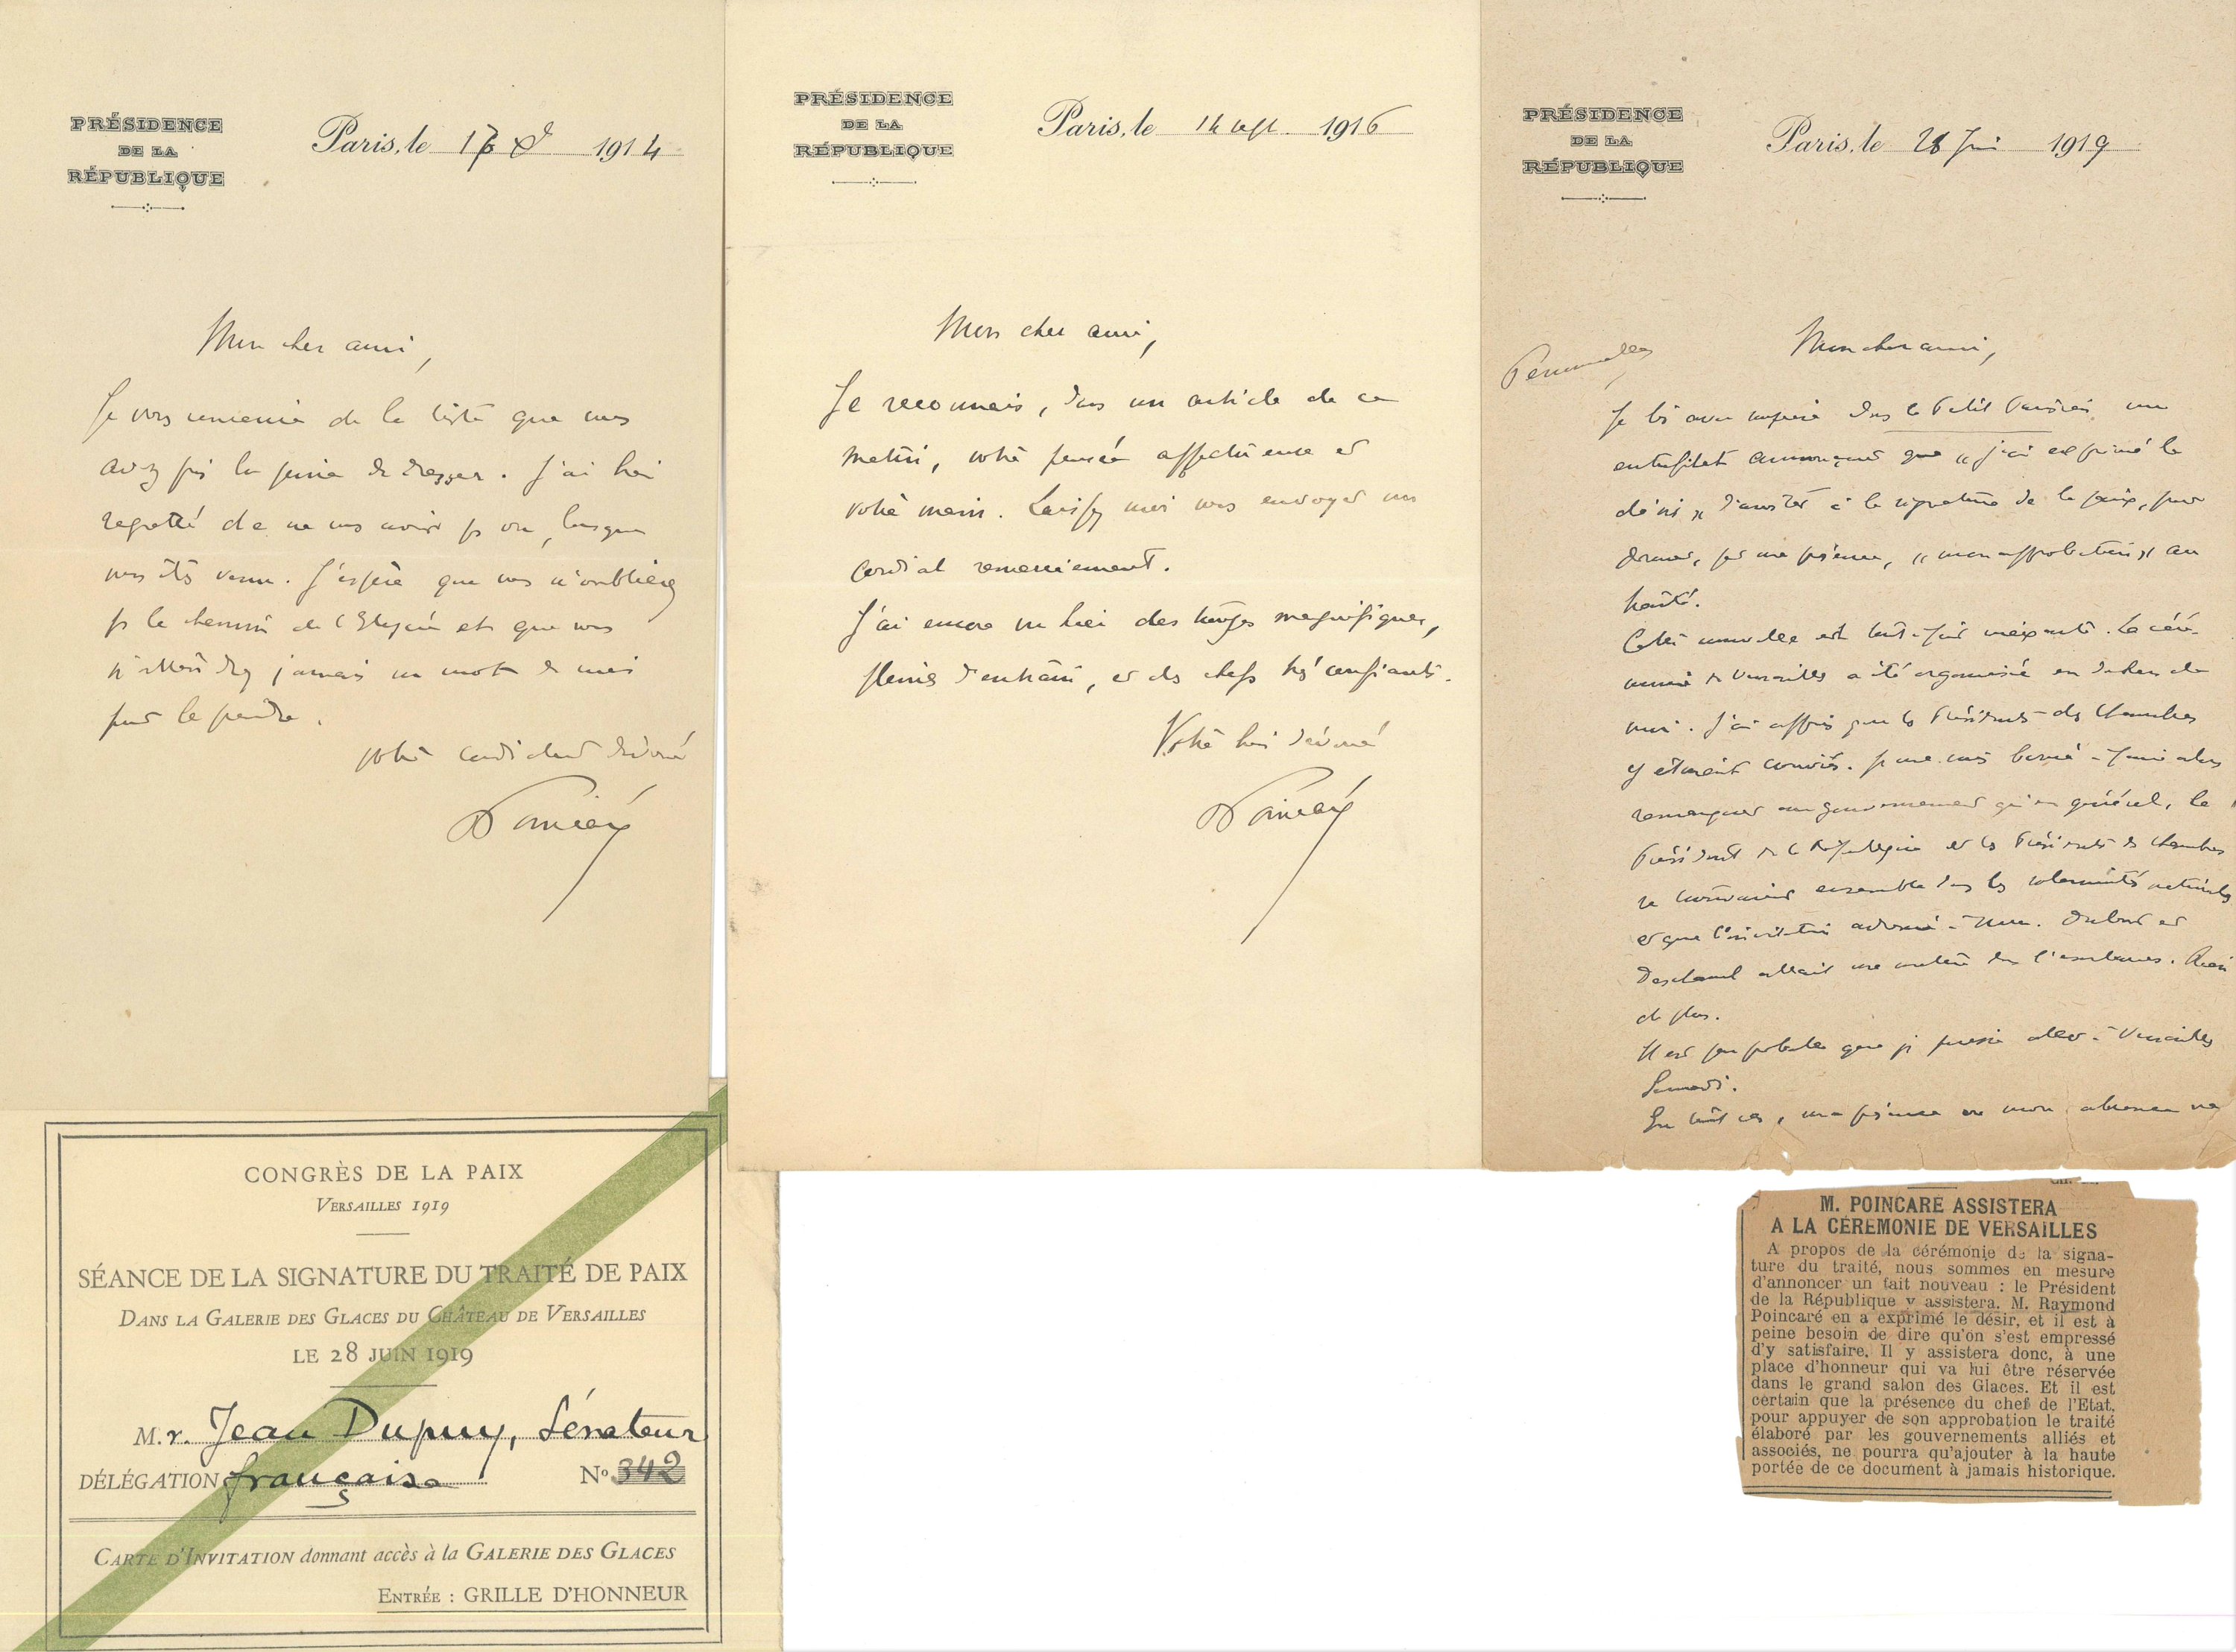 PRÉSIDENCE
DE LA
RÉPUBLIQUE
Paris, le 1914
Mon cher ami,
Je vous remercie de la liste que vous
avez pris la peine de dresser. J'ai bien
regretté de ne vous avoir pas vu, lorsque
vous êtes venu. J'espère que vous n'oublierez
pas le chemin de l'Elysée et que vous
n'attendrez jamais un mot de moi
pour le prendre.
Votre cordialement dévoué
Poincaré
PRÉSIDENCE
DE LA
RÉPUBLIQUE
Paris, le 14 sept. 1916
Mon cher ami,
Je reconnais, dans un article de ce
matin, votre pensée affectueuse et
votre main. Laissez moi vous envoyer un
cordial remerciement.
J'ai encore vu hier des troupes magnifiques,
pleines d'entrain, et des chefs très confiants.
Votre bien dévoué
Poincaré
PRÉSIDENCE
DE LA
RÉPUBLIQUE
Paris, le Juin 1919
Personnelle
Mon cher ami,
Je lis avec surprise dans le Petit Parisien un
entrefilet annonçant que « j'ai exprimé le
désir » d'assister à la signature de la paix, pour
donner, par ma présence, « mon approbation » au
traité.
Cette nouvelle est tout à fait inexacte. La céré-
monie de Versailles a été organisée en dehors de
moi. J'ai appris que les Présidents des Chambres
y étaient conviés. Je me suis borné à faire alors
remarquer au gouvernement qu'en général, le
Président de la République et les Présidents des Chambres
se trouvaient ensemble dans les solennités nationales
et que l'invitation adressée à MM. Dubost et
Deschanel allait me mettre dans l'embarras. Rien
de plus.
Il est peu probable que je puisse aller à Versailles
Samedi.
En tout cas, ma présence ou mon absence ne
CONGRÈS DE LA PAIX
VERSAILLES 1919
SÉANCE DE LA SIGNATURE DU TRAITÉ DE PAIX
DANS LA GALERIE DES GLACES DU CHÂTEAU DE VERSAILLES
LE 28 JUIN 1919
M.r. Jean Dupuy, Sénateur
DÉLÉGATION française No 342
CARTE D'INVITATION donnant accès à la GALERIE DES GLACES
ENTRÉE : GRILLE D'HONNEUR
M. POINCARÉ ASSISTERA
A LA CÉRÉMONIE DE VERSAILLES
A propos de la cérémonie de la signa-
ture du traité, nous sommes en mesure
d'annoncer un fait nouveau : le Président
de la République y assistera. M. Raymond
Poincaré en a exprimé le désir, et il est à
peine besoin de dire qu'on s'est empressé
d'y satisfaire. Il y assistera donc, à une
place d'honneur qui va lui être réservée
dans le grand salon des Glaces. Et il est
certain que la présence du chef de l'Etat,
pour appuyer de son approbation le traité
élaboré par les gouvernements alliés et
associés, ne pourra qu'ajouter à la haute
portée de ce document à jamais historique.